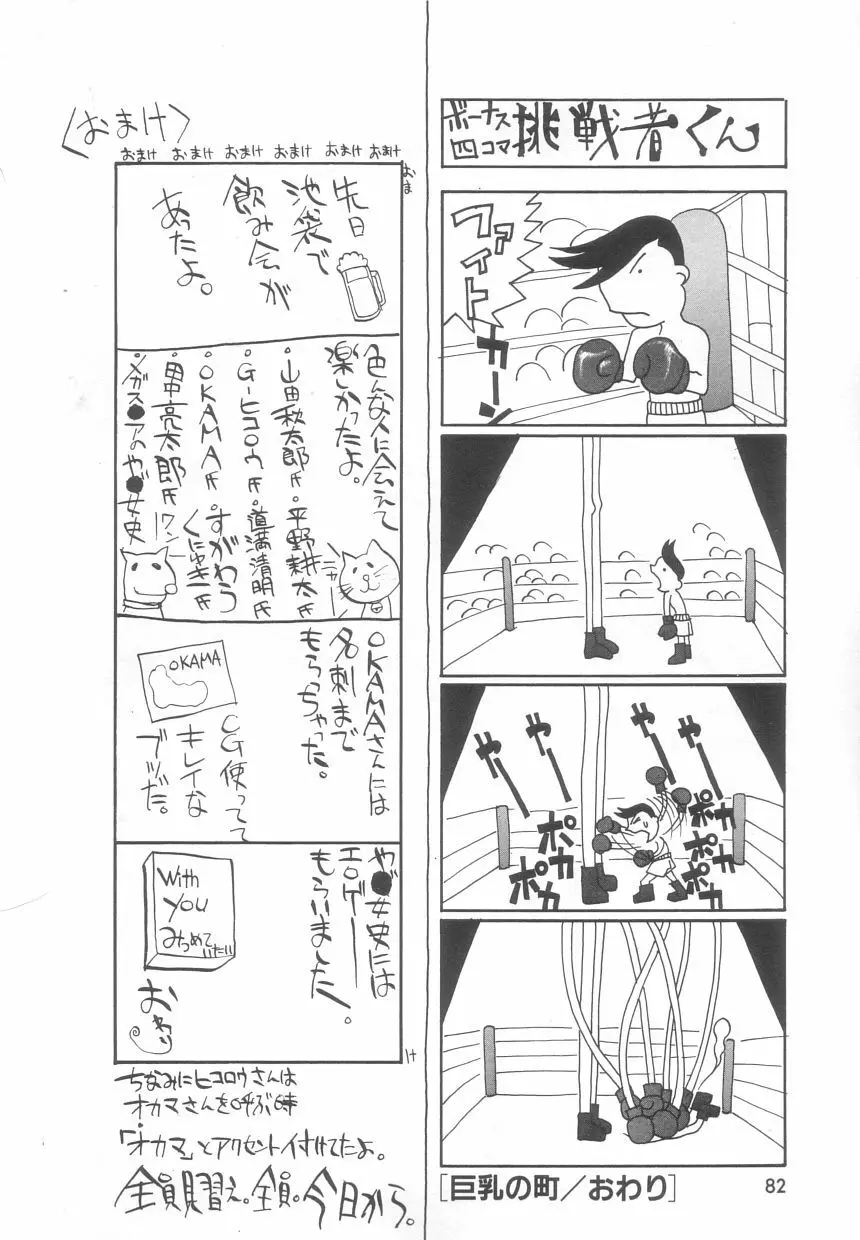 ボーナス
四コマ
挑戦者くん
ファイト
カーン
やーー
やーー
やーー
ポカ
ポカ
ポカ
ポカ
ポカ
[巨乳の町/おわり]
82
〈おまけ〉
おまけ おまけ おまけ おまけ おまけ おまけ
おま
先日
池袋で
飲み会が
あったよ。
色んな人に会えて
楽しかったよ。
・山田秋太郎氏・平野耕太氏
・G-ヒコロウ氏・道満清明氏
・OKAMA氏・すがわらくにゆき氏
・田中亮太郎氏
・メガス●アのや●女史
ニャー
ワン
OKAMAさんには
名刺まで
もらっちゃった。
OKAMA
CG使ってて
キレイな
ブツだ。
や●女史には
エロゲーー
もらいました。
With
You
みつめて
いたい
おわり
け
ちなみにヒコロウさんは
オカマさんを呼ぶ時
「オカマ」とアクセント付けてたよ。
全員見習え。全員。今日から。